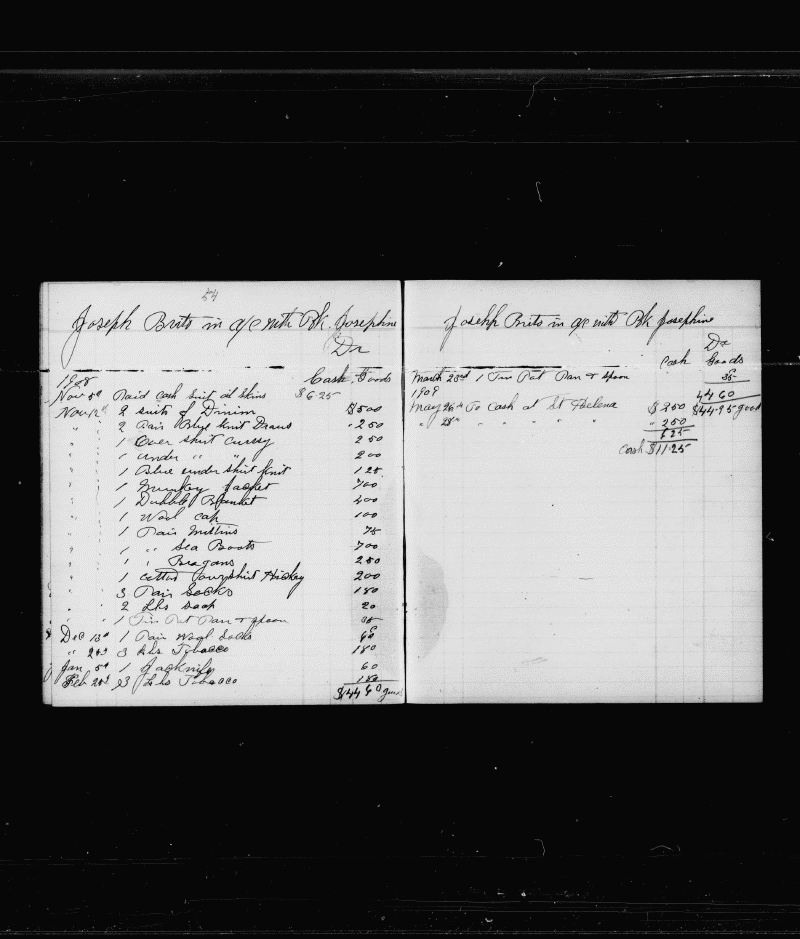 54
Joseph Brito in a/c with Bk. Josephine
Dr
1908 Cash Goods
Nov 5th Paid cash suit oil skins $6.25
Nov 12th 2 suits of Dinim $500
" " 2 Pair Blue Knit Draws " 250
" " 1 Over shirt 250
" " 1 under " " 200
" " 1 Blue under shirt Knit 125
" " 1 Munkey Jacket 700
" " 1 Dubble Blanket 400
" " 1 Wool cap 100
" " 1 Pair Mittins 75
" " 1 " Sea Boots 700
" " 1 " Brogans 250
" " 1 shirt Hickey 200
" " 3 Pair Socks 180
" " 2 Lbs soap 20
" " 1 Tin Pot Pan & spoon 35
Dec 13th 1 Pair Wool socks 60
" 2 3 Lbs Tobacco 180
Jan 5th 1 Jacknife 60
Feb 2 3 Lbs Tobacco 180
$44 60 goods
Joseph Brito in a/c with Bk Josephine
Dr
Cash Goods
March 23rd 1 Tin Pot Pan & spoon 35
1909 44 60
May 26th To Cash at St Helena $250 $44.95 goods
" 28th " " " " " 250
625
Cash $11.25